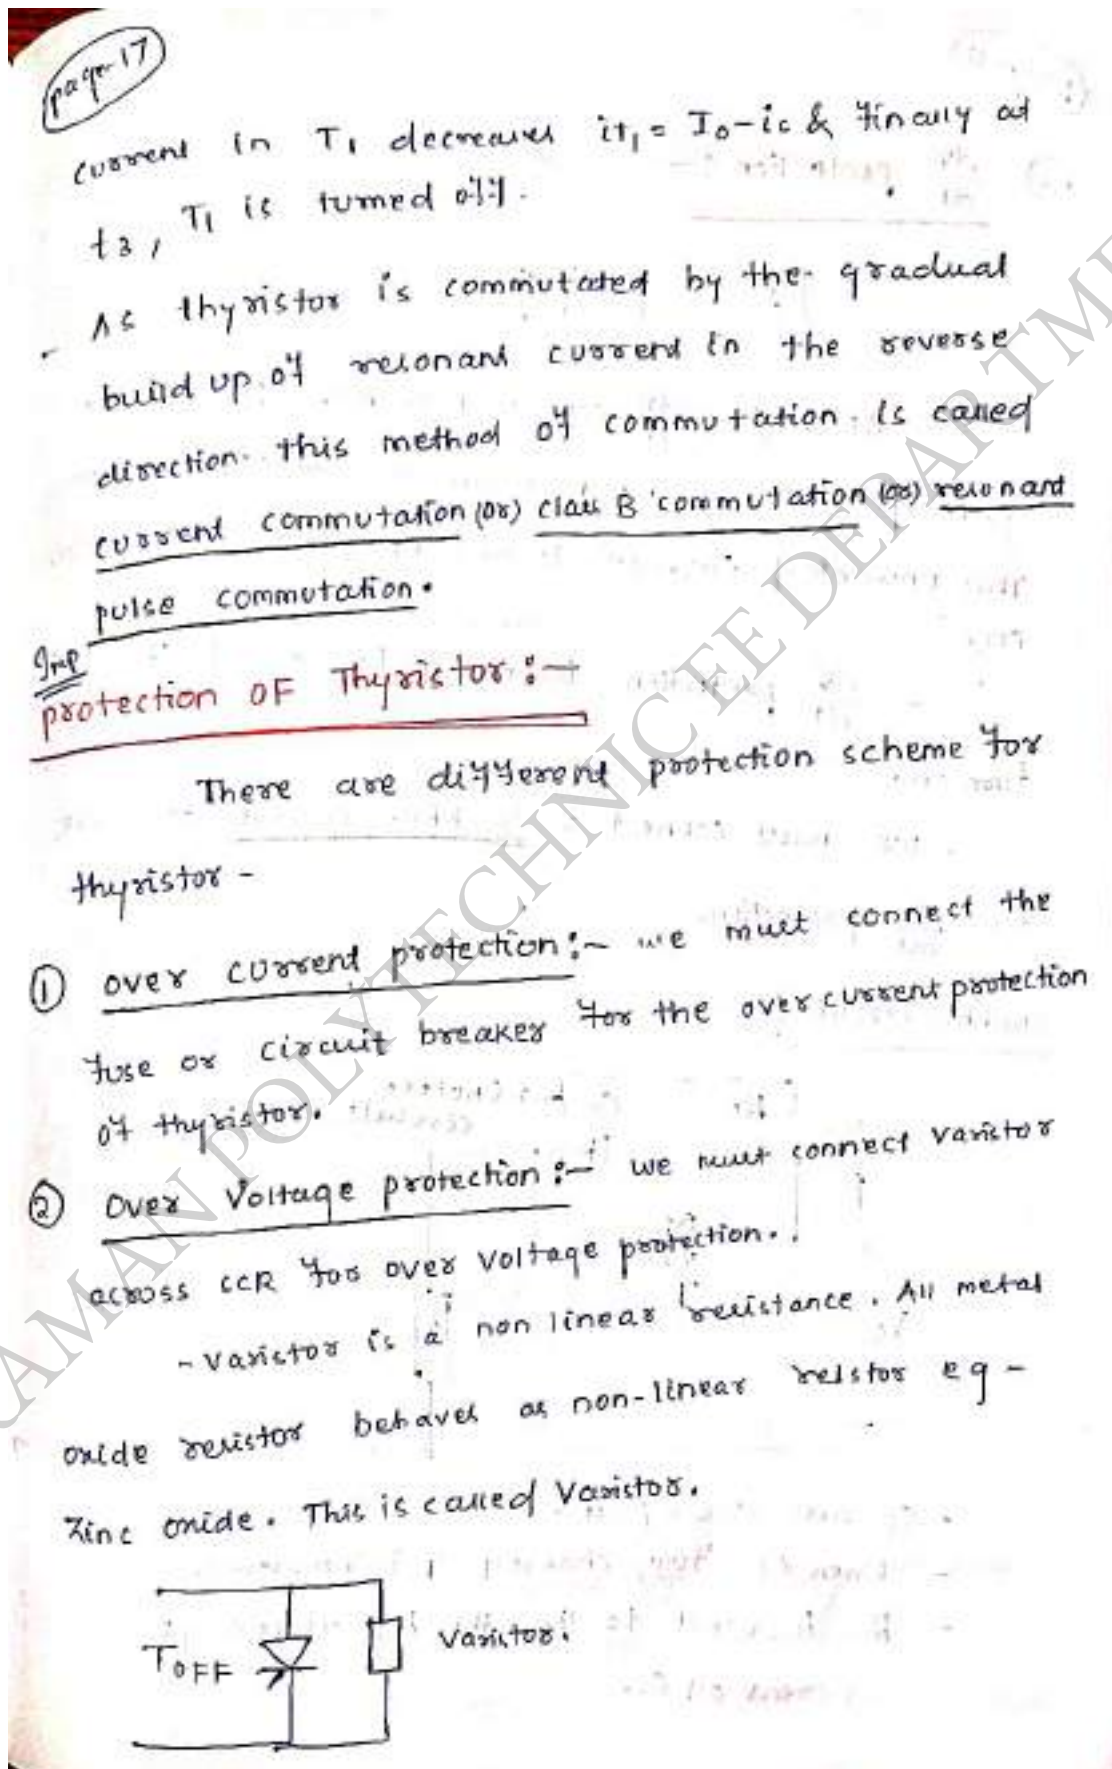 page-17
current in T1 decreases iT1 = Io-ic & finally at
t3, T1 is turned off.
- As thyristor is commutated by the gradual
build up of resonant current in the reverse
direction. this method of commutation is called
current commutation (or) class B commutation (or) resonant
pulse commutation.
Imp
protection OF Thyristor :-
There are different protection scheme for
thyristor -
① over current protection :- we must connect the
fuse or circuit breaker for the over current protection
of thyristor.
② Over Voltage protection :- we must connect varistor
across SCR for over voltage protection.
- Varistor is a non linear resistance. All metal
oxide resistor behaves as non-linear reistor eg -
Zinc oxide. This is called Varistor.
TOFF
Varistor.
RAMAN POLYTECHNIC EE DEPARTME